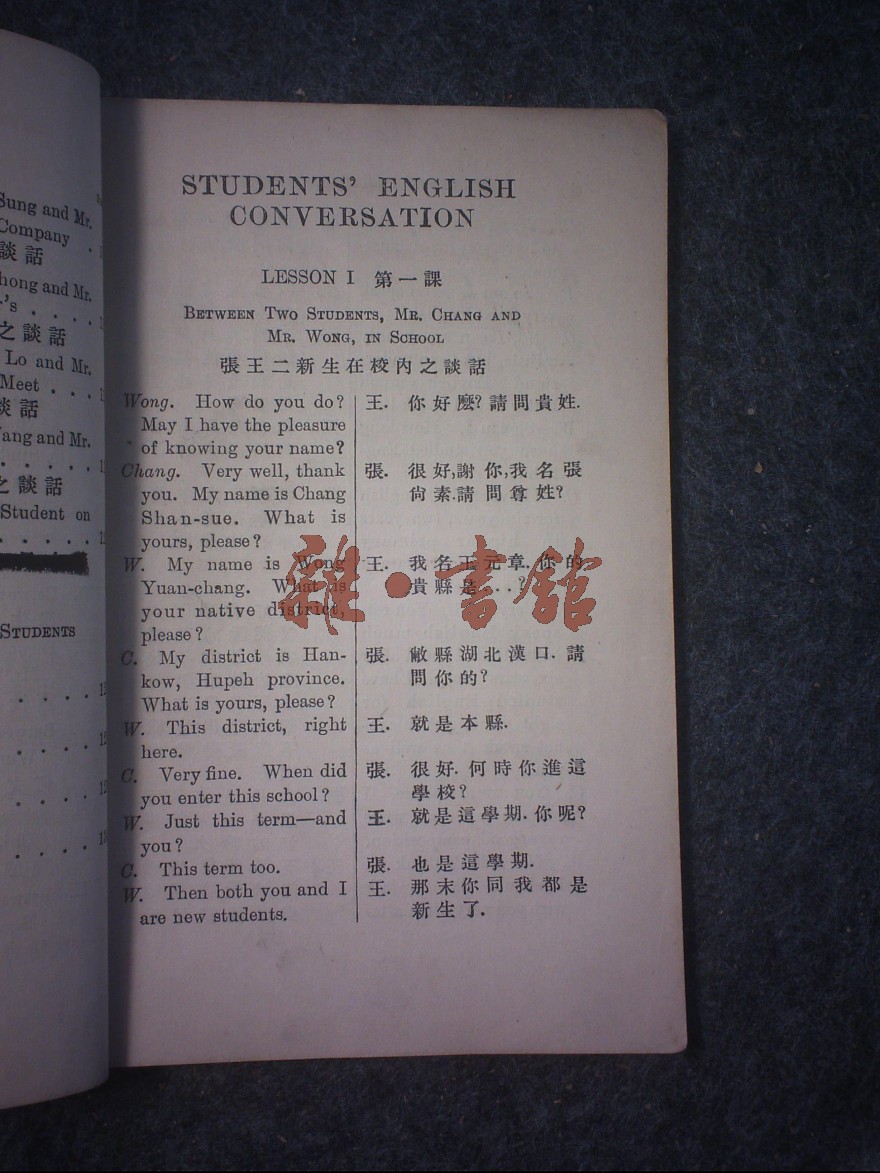 Sung and Mr.
Company .
談話
hong and Mr.
's . . . .
之談話
Lo and Mr.
Meet . . .
談話
ang and Mr.
. . . . . .
之談話
Student on
. . . . . .
STUDENTS
STUDENTS' ENGLISH
CONVERSATION
LESSON I 第一課
BETWEEN TWO STUDENTS, MR. CHANG AND
MR. WONG, IN SCHOOL
張王二新生在校內之談話
Wong. How do you do?
May I have the pleasure
of knowing your name?
Chang. Very well, thank
you. My name is Chang
Shan-sue. What is
yours, please?
W. My name is Wong
Yuan-chang. What is
your native district,
please?
C. My district is Han-
kow, Hupeh province.
What is yours, please?
W. This district, right
here.
C. Very fine. When did
you enter this school?
W. Just this term—and
you?
C. This term too.
W. Then both you and I
are new students.
王. 你好麽?請問貴姓.
張. 很好,謝你,我名張
尙素.請問尊姓?
王. 我名王元章.你的
貴縣是...?
張. 敝縣湖北漢口.請
問你的?
王. 就是本縣.
張. 很好.何時你進這
學校?
王. 就是這學期.你呢?
張. 也是這學期.
王. 那末你同我都是
新生了.
雜·書館